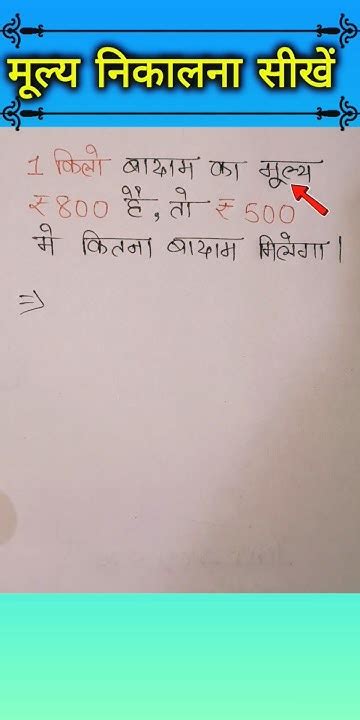 मूल्य निकालना सीखें
1 किलो बादाम का मूल्य
₹800 है, तो ₹500
मे कितना बादाम मिलेगा।
⇒